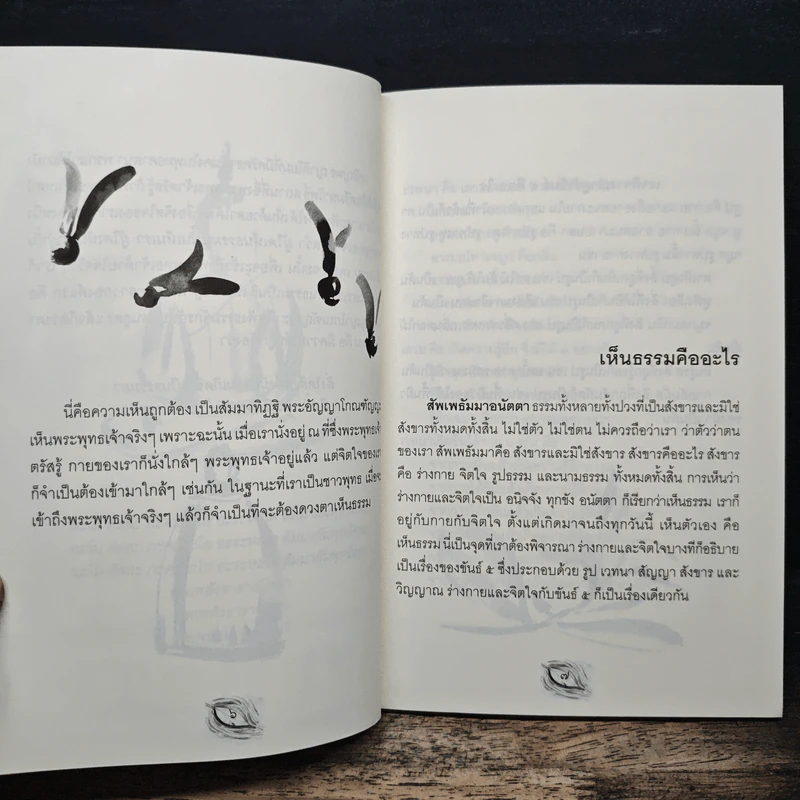 นี่คือความเห็นถูกต้อง เป็นสัมมาทิฏฐิ พระอัญญาโกณฑัญญะ
เห็นพระพุทธเจ้าจริงๆ เพราะฉะนั้น เมื่อเรานั่งอยู่ ณ ที่ซึ่งพระพุทธเจ้า
ตรัสรู้ กายของเราก็นั่งใกล้ๆ พระพุทธเจ้าอยู่แล้ว แต่จิตใจของเรา
ก็จำเป็นต้องเข้ามาใกล้ๆ เช่นกัน ในฐานะที่เราเป็นชาวพุทธ
เข้าถึงพระพุทธเจ้าจริงๆ แล้วก็จำเป็นที่จะต้องดวงตาเห็นธรรม
๖
เห็นธรรมคืออะไร
สัพเพธัมมาอนัตตา ธรรมทั้งหลายทั้งปวงที่เป็นสังขารและมิใช่
สังขารทั้งหมดทั้งสิ้น ไม่ใช่ตัว ไม่ใช่ตน ไม่ควรถือว่าเรา ว่าตัวว่าตน
ของเรา สัพเพธัมมาคือ สังขารและมิใช่สังขาร สังขารคืออะไร สังขาร
คือ ร่างกาย จิตใจ รูปธรรม และนามธรรม ทั้งหมดทั้งสิ้น การเห็นว่า
ร่างกายและจิตใจเป็น อนิจจัง ทุกขัง อนัตตา ก็เรียกว่าเห็นธรรม เราก็
อยู่กับกายกับจิตใจ ตั้งแต่เกิดมาจนถึงทุกวันนี้ เห็นตัวเอง คือ
เห็นธรรม นี่เป็นจุดที่เราต้องพิจารณา ร่างกายและจิตใจบางทีก็อธิบาย
เป็นเรื่องของขันธ์ ๕ ซึ่งประกอบด้วย รูป เวทนา สัญญา สังขาร และ
วิญญาณ ร่างกายและจิตใจกับขันธ์ ๕ ก็เป็นเรื่องเดียวกัน
๗